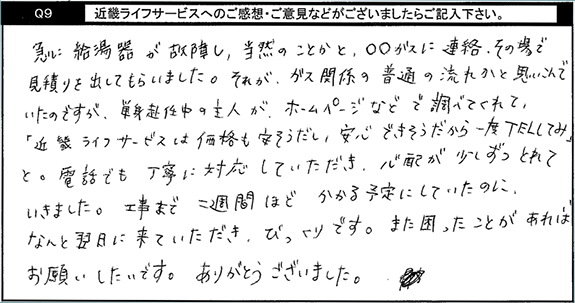 Q9 近畿ライフサービスへのご感想・ご意見などがございましたらご記入下さい。
急に給湯器が故障し、当然のことかと、○○ガスに連絡、その場で
見積りを出してもらいました。それが、ガス関係の普通の流れかと思いこんで
いたのですが、単身赴任中の主人が、ホームページなどで調べてくれて、
「近畿ライフサービスは価格も安そうだし、安心できそうだから一度TELしてみ」
と。電話でも丁寧に対応していただき、心配が少しずつとれて
いきました。工事まで二週間ほどかかる予定にしていたのに、
なんと翌日に来ていただき、びっくりです。また困ったことがあれば
お願いしたいです。ありがとうございました。